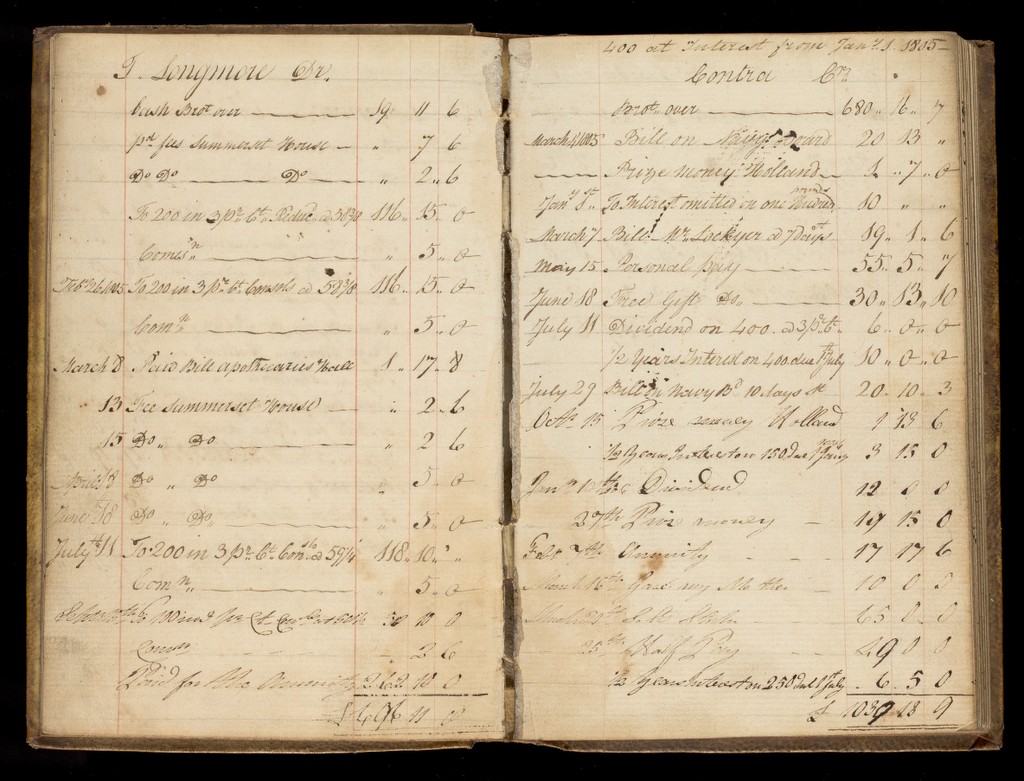 T Longmore Dr.
Cash Brot over 19 11 6
pd. fees Summerset House " 7 6
Do Do Do " 2 " 6
To 200 in 3 pr. Ct. Reduc. a 58 3/8 116 " 15 " 0
Comisn. " 5 " 0
Feb 26 1805 To 200 in 3 pr. Ct. Consols a 58 3/8 116 " 15 " 0
Comn. " 5 " 0
March 8 Paid Bill apothecaries Hall 1 " 17 " 8
13 Fee Summerset House " 2 " 6
15 Do " Do " 2 6
April 8 Do " Do " 5 " 0
June 18 Do " Do " 5 " 0
July 11 To 200 in 3 pr. Ct. Cons. a 59 1/4 118 " 10 " "
Comn. " 5 " 0
10 0
Comn 2 6
Paid for the Annuity 262 10 0
£ 696 11 0
400 at Interest from Jany. 1. 1805
Contra Cr.
Brot. over 680 " 16 " 7
March 4 1805 Bill on Navy Board 20 13 "
Prize money Holland 1 " 7 " 0
Jany 1st To Interest omitted on one Hundred pounds 10 " "
March 7 Bill. Mr. Lockyer a 7 Days 19 " 1 " 6
May 15 Personal pay 55 " 5 " 7
June 18 Free Gift Do. 30 " 13 " 10
July 11 Dividend on 400. a 3 pr. Ct. 6 " 0 " 0
1/2 Years Interest on 400 due 1st July 10 " 0 " 0
July 29 Bill on Navy Bd. 10 days St. 20 " 10 " 3
Octr. 15 Prize money Holland 1 13 6
1/2 Years Interest on 150 due 1st Jany 3 15 0
Jany Dividend 12 0 0
27th Prize money 19 15 0
Feb 7th Annuity 17 17 6
March 16th my Mother 10 0 0
65 0 0
25th Half Pay 49 0 0
1/2 Years Interest on 250 due 1 July 6 5 0
£ 1039 18 9